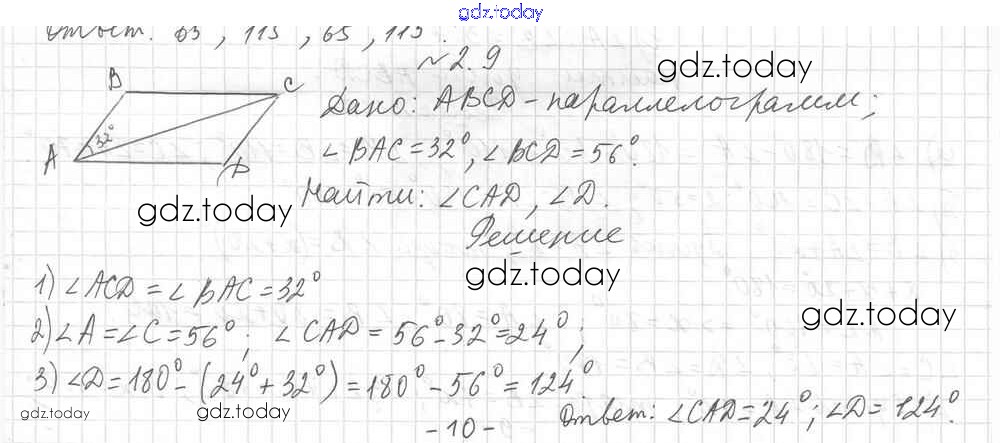 gdz.today
Ответ: 65°, 115°, 65°, 115°.
№2.9
gdz.today
B
C
Дано: ABCD - параллелограмм;
32°
A
D
∠BAC=32°, ∠BCD=56°.
Найти: ∠CAD, ∠D.
gdz.today
Решение
gdz.today
1) ∠ACD=∠BAC=32°
gdz.today
2) ∠A=∠C=56°; ∠CAD=56°-32°=24°;
3) ∠D=180°-(24°+32°)=180°-56°=124°.
gdz.today
gdz.today
Ответ: ∠CAD=24°; ∠D=124°.
-10-